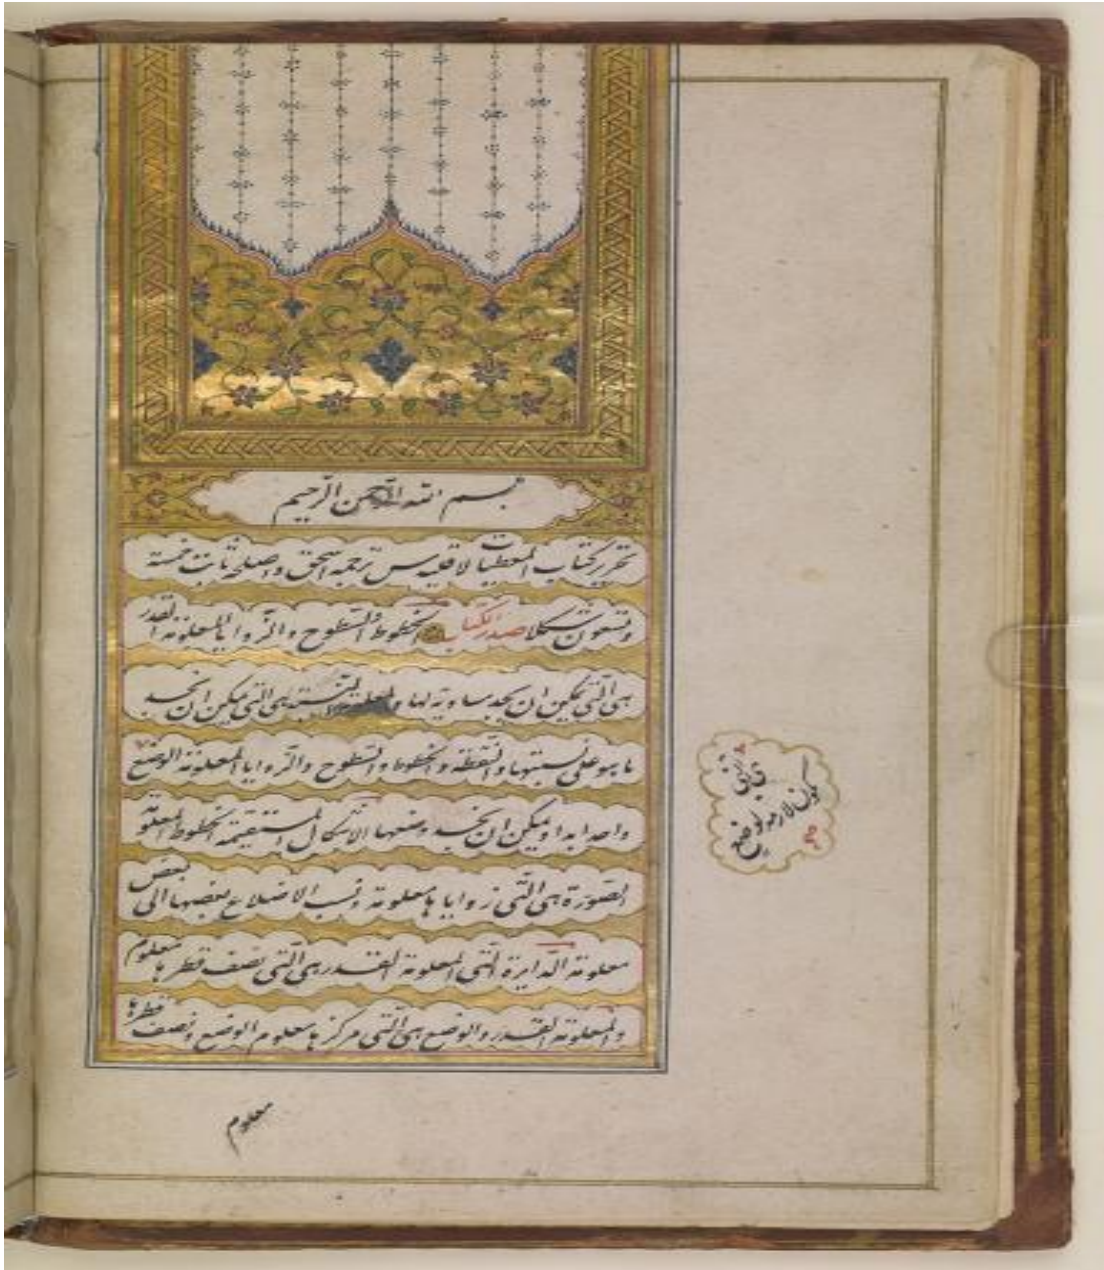 بسم الله الرحمن الرحيم
تحرير كتاب المعطيات لاقليدس ترجمه اسحق واصلحه ثابت خمسة
وتسعون شكلا صدر الكتاب الخطوط والسطوح والزوايا المعلومة القدر
هى التى يمكن ان يجد مساوية لها والمعلومة النسبة هى التى يمكن ان نجد
ما هو على نسبتها والنقطة والخطوط والسطوح والزوايا المعلومة الوضع
واحدا ابدا ويمكن ان نجد وضعها الاشكال المستقيمة الخطوط المعلومة
الصورة هى التى زواياها معلومة ونسب الاضلاع بعضها الى بعض
معلومة الدايرة التى المعلومة القدر هى التى نصف قطرها معلوم
والمعلومة القدر والوضع هى التى مركزها معلوم الوضع ونصف قطرها
يكون لازمه لوضع
صح
معلوم